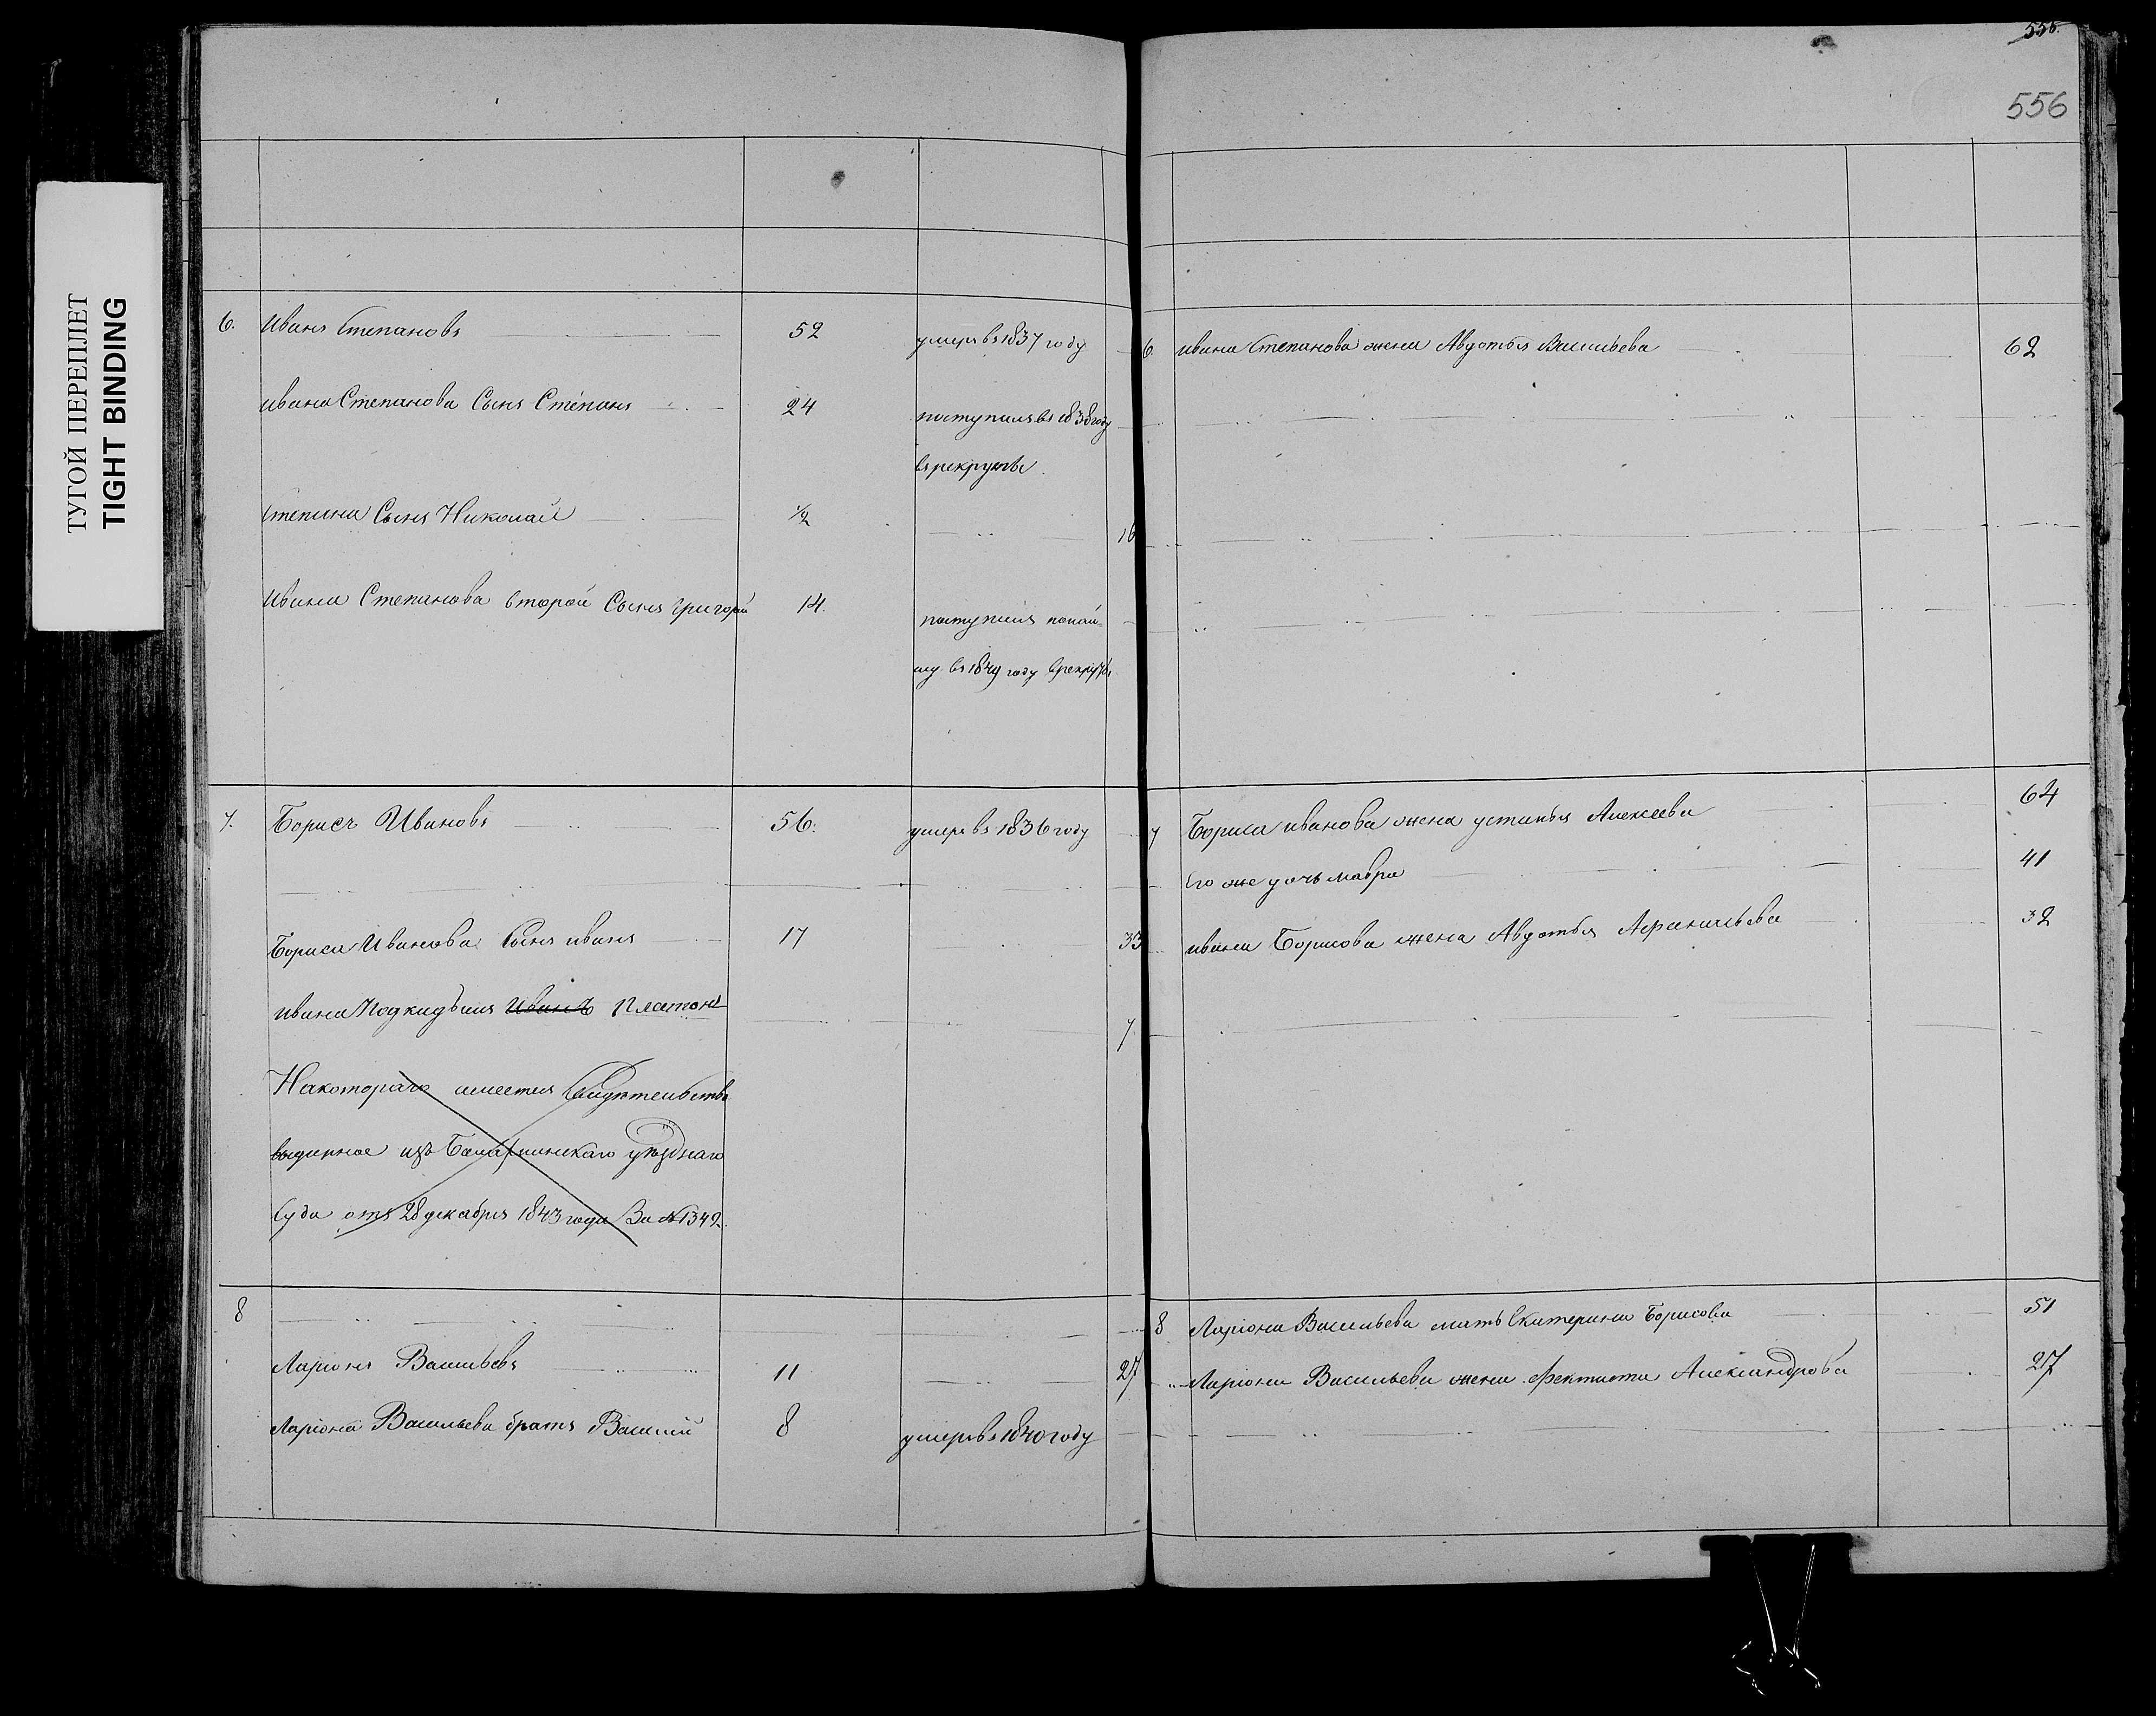 ТУГОЙ ПЕРЕПЛЕТ
TIGHT BINDING
556.
556
6. Иванъ Степановъ 52 умеръ въ 1837 году
Ивана Степанова Сынъ Степанъ 24 поступилъ въ 1838 году
въ рекруты
Степана Сынъ Николай 1/2 16
Ивана Степанова второй Сынъ Григорий 14 поступилъ
въ 1849 году в рекруты
7. Борисъ Ивановъ 56. умеръ въ 1836 году
Бориса Иванова Сынъ иванъ 17 33
ивана Подкидышъ Иванъ Платонъ 7
На котораго имеется
выданное изъ уѣзднаго
Суда отъ 28 декабря 1843 года За № 1342.
8
Ларіонъ Васильевъ 11 27
Ларіона Васильева братъ Василий 8 умеръ въ 1840 году
6. ивана Степанова жена Авдотья Васильева 62
7 Бориса иванова жена устинья Алексеева 64
Его же дочь мавра 41
ивана Борисова жена Авдотья 32
8 Ларіона Васильева мать Екатерина Борисова 51
Ларіона Васильева жена Фектиста Александрова 27